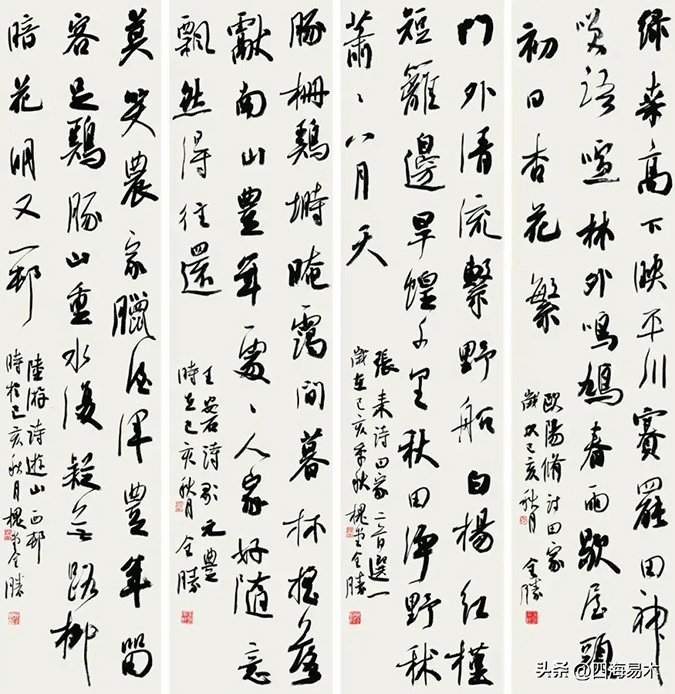 綠桑高下映平川賽罷田神
笑語喧林外鳴鳩春雨歇屋頭
初日杏花繁
歐陽脩詩田家
歲次己亥秋月 金勝
門外清流繫野船白楊紅槿
短籬邊旱蝗千里秋田淨野秫
蕭〻八月天
張耒詩田家二首選一
歲在己亥年秋槐堂金勝
豚柵鷄塒晻靄間暮林搖落
獻南山豐年處〻人家好隨意
飄然得往還
王安石詩歌元豐
時在己亥秋月金勝
莫笑農家臘酒渾豐年留
客足鷄豚山重水復疑無路柳
暗花明又一邨
陸游詩遊山西邨
時於己亥秋月槐堂金勝
头条 @四海易木